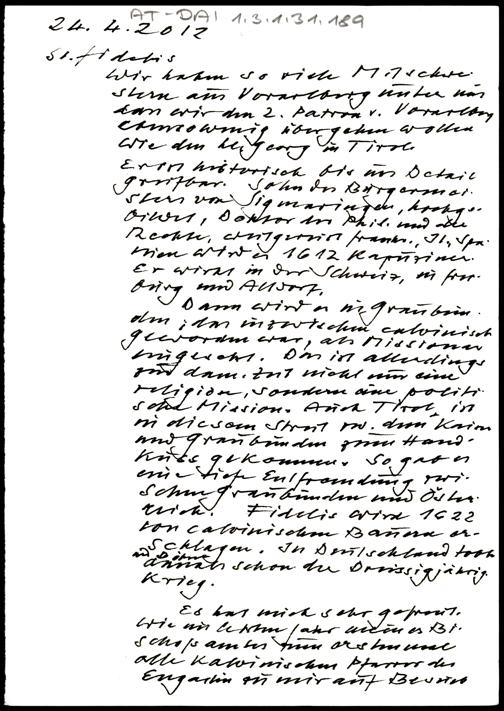 AT-DAI 1.3.1.31.189
24.4.2012
St. Fidelis
Wir haben so viele Mitschwe-
stern aus Vorarlberg unter uns
dass wir den 2. Patron v. Vorarlberg
ebensowenig übergehen wollen
wie den hl. Georg in Tirol
Er ist historisch bis ins Detail
greifbar. Sohn des Bürgermei-
sters von Sigmaringen, hochge-
bildet, Doktor der Phil. und der
Rechte, weitgereist Frankr., It., Spa-
nien wird er 1612 Kapuziner.
Er wirkt in der Schweiz, in Frei-
burg und Altdorf.
Dann wird er in Graubün-
den, das inzwischen calvinisch
geworden war, als Missionar
eingesetzt. Das ist allerdings
zur dam. Zeit nicht nur eine
religiöse, sondern eine politi-
sche Mission. Auch Tirol ist
in diesem Streit zw. dem Kaiser
und Graubünden zum Hand-
kuss gekommen. So gab es
eine tiefe Entfremdung zwi-
schen Graubünden und Öster-
reich. Fidelis wird 1622
von calvinischen Bauern er-
schlagen. In Deutschland tobt
damals schon der Dreissigjährig.
Krieg.
Es hat mich sehr gefreut.
wie im letzten Jahr meines Bi-
schofsamtes zum erstenmal
alle kalvinischen Pfarrer des
Engadin zu mir auf Besuch